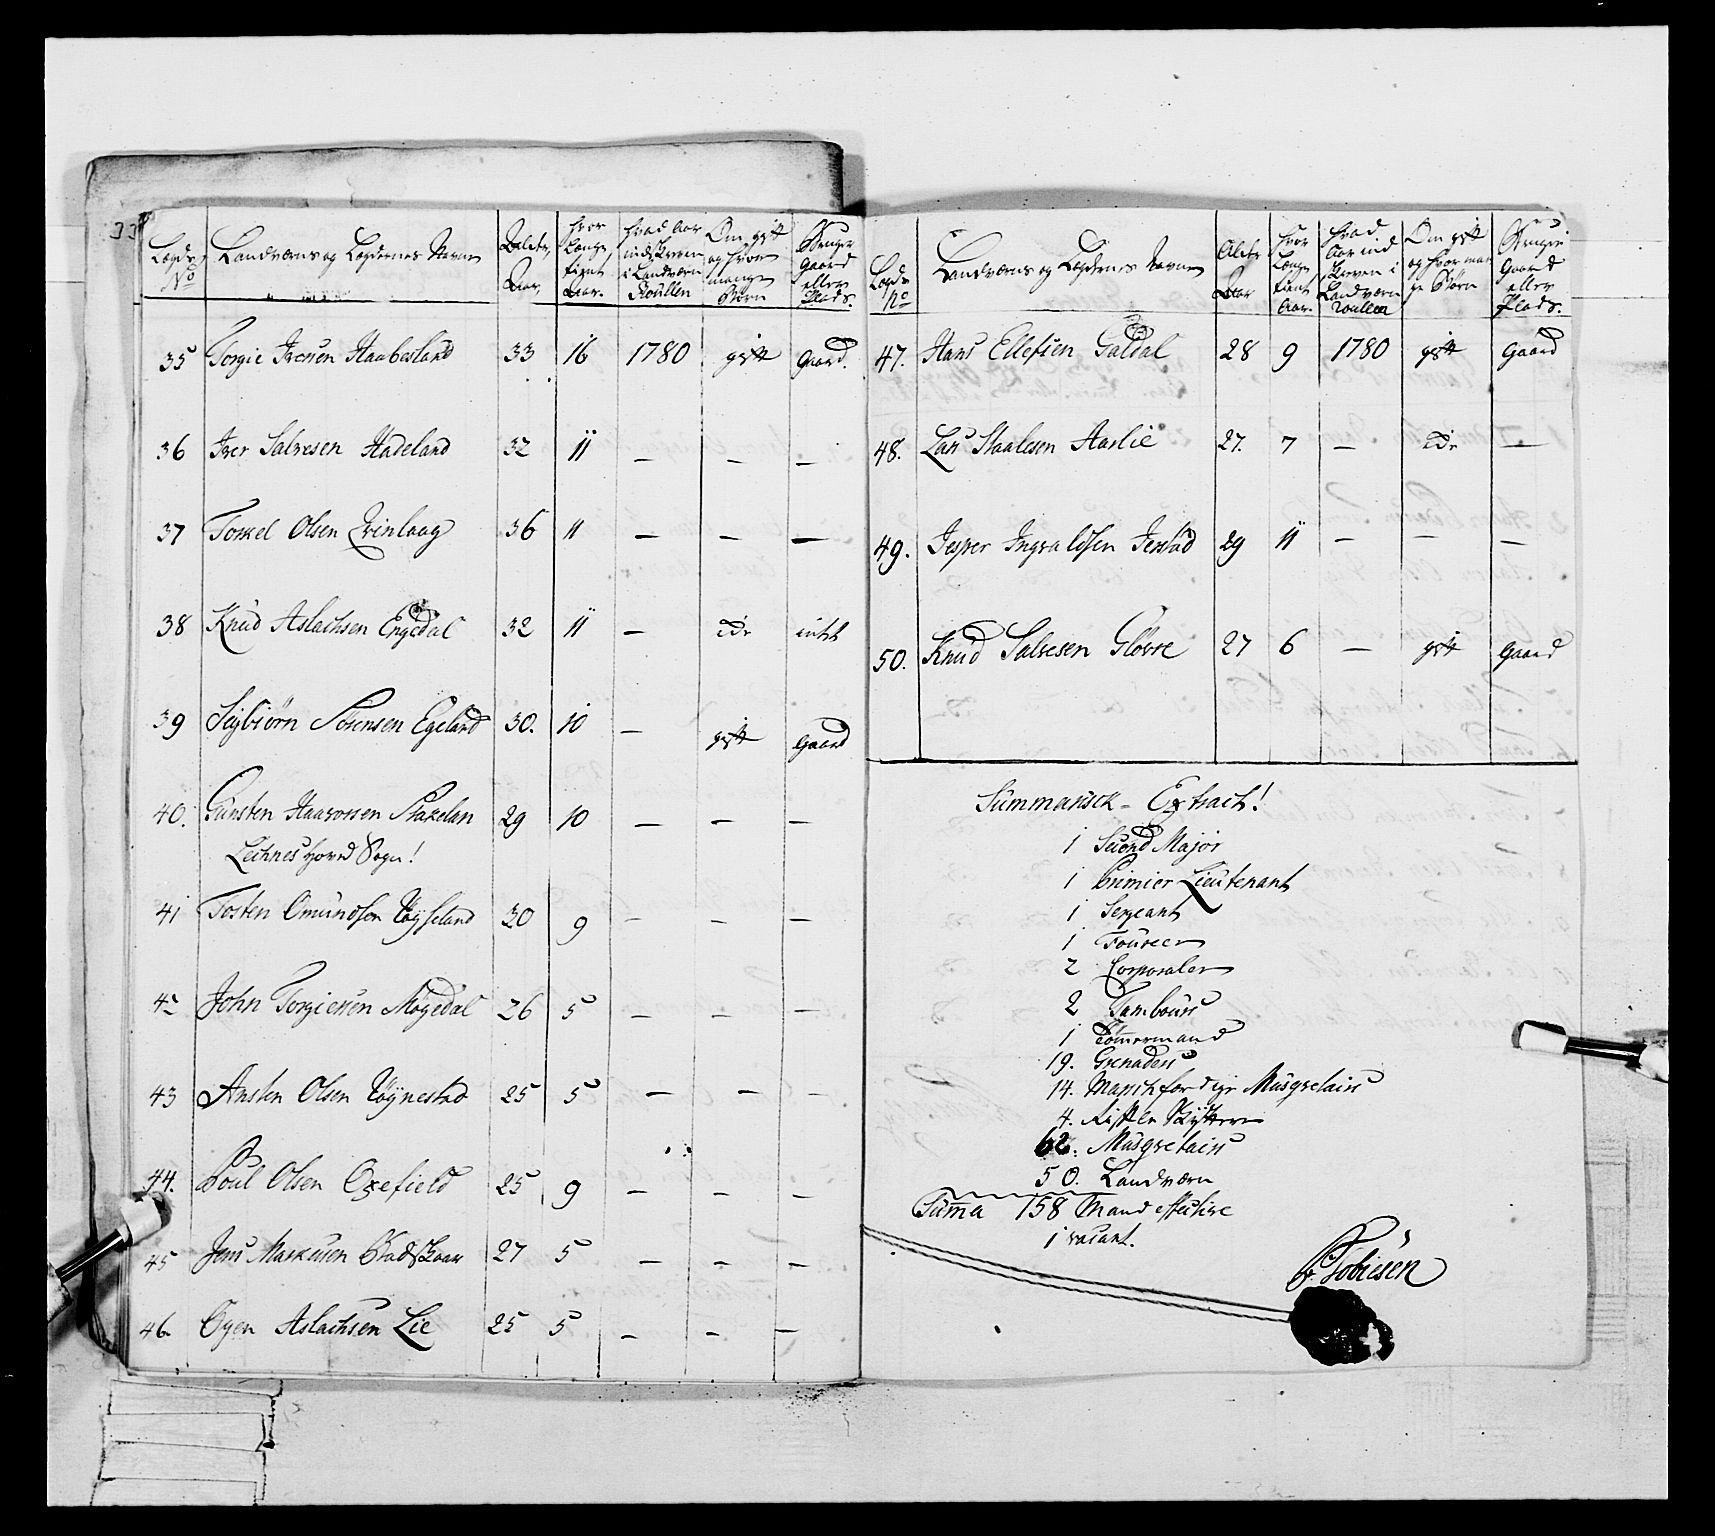 Lægds No | Landværns og Lægdernes Navne | Alder, Aar, | hvor Længe tient Aar. | hvad Aar indskreven i Landværn Roullen | Om gift og hvor mange Børn | Bruger Gaard eller Plads.
35 Torgie Iversen Haabesland 33 16 1780 gift Gaard.
36 Iver Salvesen Hadeland 32 11 — — —
37 Torkel Olsen Qvinlaag 36 11 — — —
38 Knud Aslachsen Engedal 32 11 — Do intet
39 Seybiørn Sørensen Egeland 30. 10 — gift Gaard
40. Gunsten Haavorsen Stakelan 29 10 — — —
Lechnes Hoved Sogn!
41 Tosten Omundsen Røyseland 30 9 — — —
42 John Torgiersen Møgedal 26 5 — — —
43 Ansten Olsen Røynestad 25 5 — — —
44. Poul Olsen Oxefield 25 9 — — —
45 Jens Markusen Stadskaar 27 5 — — —
46. Ogen Aslachsen Lie 25 5 — — —
Lægds No | Landværns og Lægdernes Navne | Alder Aar | hvor Længe tient Aar. | hvad Aar indskreven i Landværn Roullen | Om gift og hvor mange Børn | Bruger Gaard eller Plads.
47. Hans Ellefsen Galdal 28 9 1780 gift Gaard
48. Lars Staalesen Aarlie 27. 7 — Do —
49. Jesper Ingvaldsen Jerstad 29 11 — — —
50. Knud Salvesen Gløvre 27 6 — gift Gaard
Summarisck - Extract!
1 Secund Major
1 Premier Lieutenant
1 Sergeant
1 Foureer
2 Corporaler
2 Tambours
1 Tømermand
19. Grenaders
14. Marschfærdige Musqvetairs
4. Riffler Skytter
62. Musqvetairs
50. Landværn
Summa 158 Mand effective
1 vacant.
Tobiesen